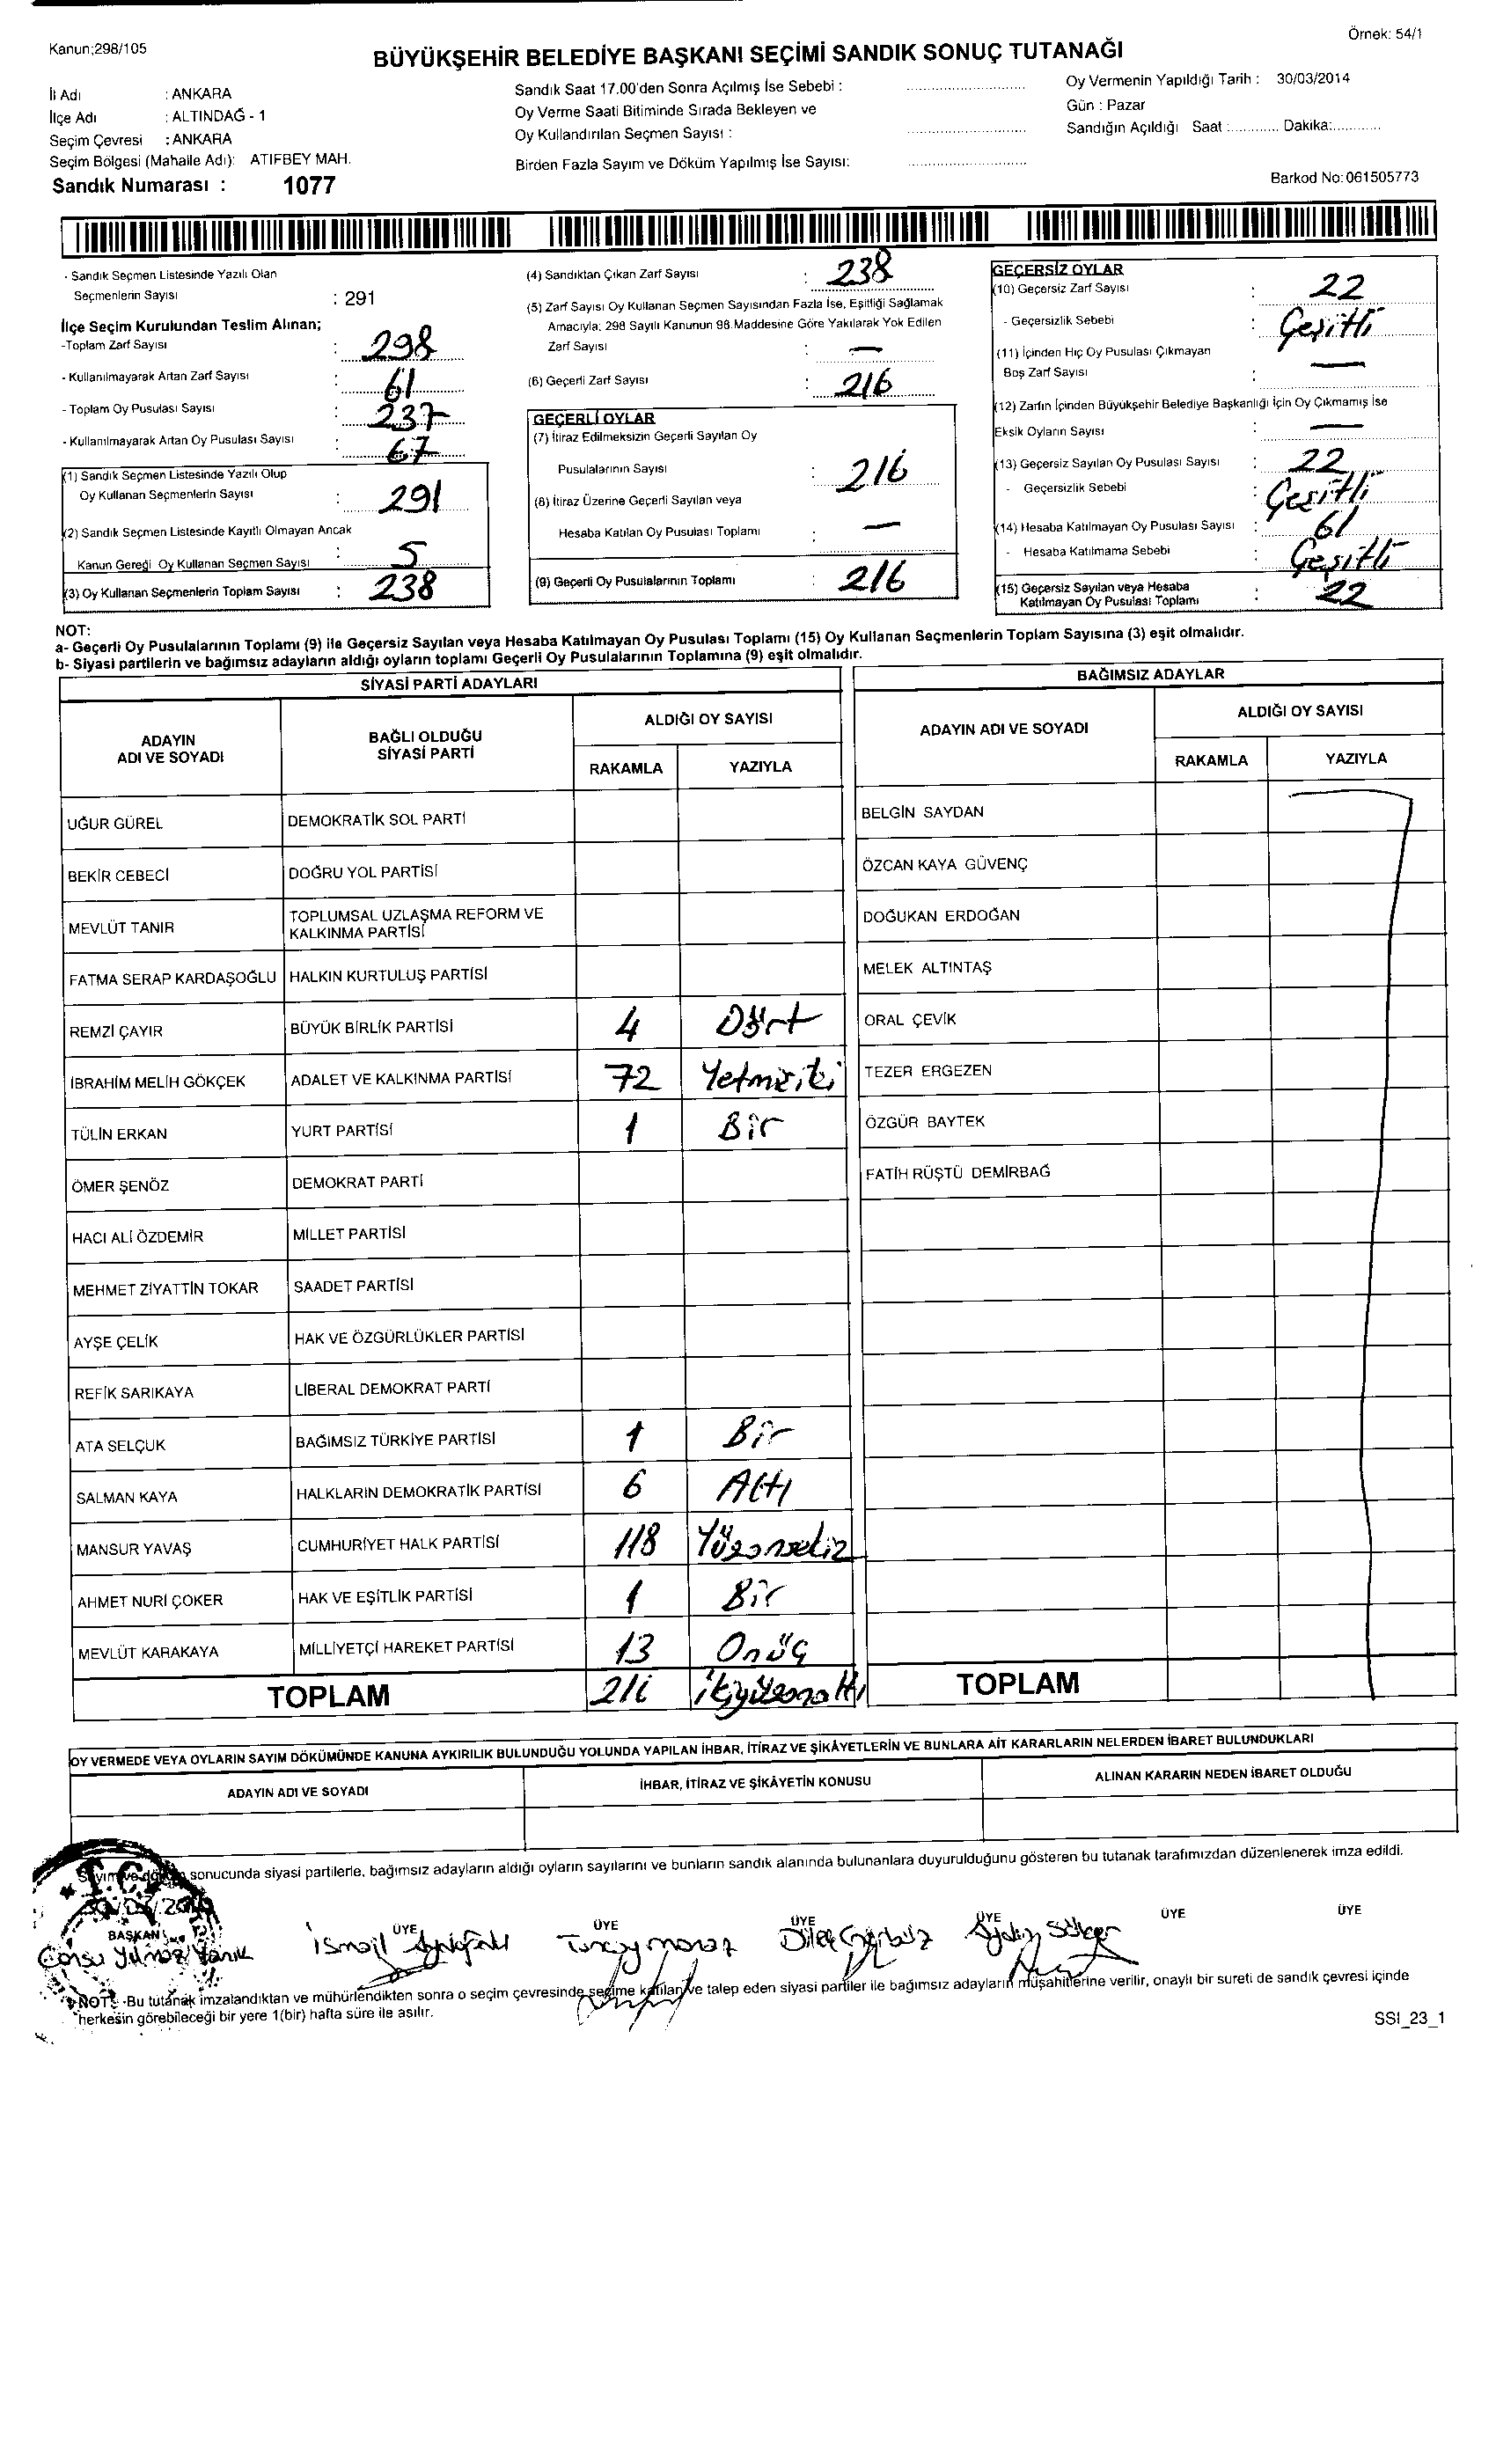 Kanun;298/105
Örnek: 54/1
BÜYÜKŞEHİR BELEDİYE BAŞKANI SEÇİMİ SANDIK SONUÇ TUTANAĞI
İl Adı : ANKARA
İlçe Adı : ALTINDAĞ - 1
Seçim Çevresi : ANKARA
Seçim Bölgesi (Mahalle Adı): ATIFBEY MAH.
Sandık Numarası : 1077
Sandık Saat 17.00'den Sonra Açılmış İse Sebebi :
Oy Verme Saati Bitiminde Sırada Bekleyen ve
Oy Kullandırılan Seçmen Sayısı :
Birden Fazla Sayım ve Döküm Yapılmış İse Sayısı:
Oy Vermenin Yapıldığı Tarih : 30/03/2014
Gün : Pazar
Sandığın Açıldığı Saat :............ Dakika:............
Barkod No:061505773
- Sandık Seçmen Listesinde Yazılı Olan
Seçmenlerin Sayısı : 291
İlçe Seçim Kurulundan Teslim Alınan;
-Toplam Zarf Sayısı : 298
- Kullanılmayarak Artan Zarf Sayısı : 61
- Toplam Oy Pusulası Sayısı : 237
- Kullanılmayarak Artan Oy Pusulası Sayısı : 67
(1) Sandık Seçmen Listesinde Yazılı Olup
Oy Kullanan Seçmenlerin Sayısı : 291
(2) Sandık Seçmen Listesinde Kayıtlı Olmayan Ancak
Kanun Gereği Oy Kullanan Seçmen Sayısı : 5
(3) Oy Kullanan Seçmenlerin Toplam Sayısı : 238
(4) Sandıktan Çıkan Zarf Sayısı : 238
(5) Zarf Sayısı Oy Kullanan Seçmen Sayısından Fazla İse, Eşitliği Sağlamak
Amacıyla; 298 Sayılı Kanunun 98.Maddesine Göre Yakılarak Yok Edilen
Zarf Sayısı : —
(6) Geçerli Zarf Sayısı : 216
GEÇERLİ OYLAR
(7) İtiraz Edilmeksizin Geçerli Sayılan Oy
Pusulalarının Sayısı : 216
(8) İtiraz Üzerine Geçerli Sayılan veya
Hesaba Katılan Oy Pusulası Toplamı : —
(9) Geçerli Oy Pusulalarının Toplamı : 216
GEÇERSİZ OYLAR
(10) Geçersiz Zarf Sayısı : 22
- Geçersizlik Sebebi : Çeşitli
(11) İçinden Hiç Oy Pusulası Çıkmayan
Boş Zarf Sayısı : —
(12) Zarfın İçinden Büyükşehir Belediye Başkanlığı İçin Oy Çıkmamış İse
Eksik Oyların Sayısı : —
(13) Geçersiz Sayılan Oy Pusulası Sayısı : 22
- Geçersizlik Sebebi : Çeşitli
(14) Hesaba Katılmayan Oy Pusulası Sayısı : 61
- Hesaba Katılmama Sebebi : Çeşitli
(15) Geçersiz Sayılan veya Hesaba
Katılmayan Oy Pusulası Toplamı : 22
NOT:
a- Geçerli Oy Pusulalarının Toplamı (9) ile Geçersiz Sayılan veya Hesaba Katılmayan Oy Pusulası Toplamı (15) Oy Kullanan Seçmenlerin Toplam Sayısına (3) eşit olmalıdır.
b- Siyasi partilerin ve bağımsız adayların aldığı oyların toplamı Geçerli Oy Pusulalarının Toplamına (9) eşit olmalıdır.
SİYASİ PARTİ ADAYLARI
ADAYIN ADI VE SOYADI
BAĞLI OLDUĞU SİYASİ PARTİ
ALDIĞI OY SAYISI
RAKAMLA YAZIYLA
UĞUR GÜREL DEMOKRATİK SOL PARTİ
BEKİR CEBECİ DOĞRU YOL PARTİSİ
MEVLÜT TANIR TOPLUMSAL UZLAŞMA REFORM VE KALKINMA PARTİSİ
FATMA SERAP KARDAŞOĞLU HALKIN KURTULUŞ PARTİSİ
REMZİ ÇAYIR BÜYÜK BİRLİK PARTİSİ 4 Dört
İBRAHİM MELİH GÖKÇEK ADALET VE KALKINMA PARTİSİ 72 Yetmişiki
TÜLİN ERKAN YURT PARTİSİ 1 Bir
ÖMER ŞENÖZ DEMOKRAT PARTİ
HACI ALİ ÖZDEMİR MİLLET PARTİSİ
MEHMET ZİYATTİN TOKAR SAADET PARTİSİ
AYŞE ÇELİK HAK VE ÖZGÜRLÜKLER PARTİSİ
REFİK SARIKAYA LİBERAL DEMOKRAT PARTİ
ATA SELÇUK BAĞIMSIZ TÜRKİYE PARTİSİ 1 Bir
SALMAN KAYA HALKLARIN DEMOKRATİK PARTİSİ 6 Altı
MANSUR YAVAŞ CUMHURİYET HALK PARTİSİ 118 Yüzonsekiz
AHMET NURİ ÇOKER HAK VE EŞİTLİK PARTİSİ 1 Bir
MEVLÜT KARAKAYA MİLLİYETÇİ HAREKET PARTİSİ 13 Onüç
TOPLAM 216 ikiyüzonaltı
BAĞIMSIZ ADAYLAR
ADAYIN ADI VE SOYADI
ALDIĞI OY SAYISI
RAKAMLA YAZIYLA
BELGİN SAYDAN
ÖZCAN KAYA GÜVENÇ
DOĞUKAN ERDOĞAN
MELEK ALTINTAŞ
ORAL ÇEVİK
TEZER ERGEZEN
ÖZGÜR BAYTEK
FATİH RÜŞTÜ DEMİRBAĞ
TOPLAM
OY VERMEDE VEYA OYLARIN SAYIM DÖKÜMÜNDE KANUNA AYKIRILIK BULUNDUĞU YOLUNDA YAPILAN İHBAR, İTİRAZ VE ŞİKÂYETLERİN VE BUNLARA AİT KARARLARIN NELERDEN İBARET BULUNDUKLARI
ADAYIN ADI VE SOYADI
İHBAR, İTİRAZ VE ŞİKÂYETİN KONUSU
ALINAN KARARIN NEDEN İBARET OLDUĞU
T.C.
Sayım ve döküm sonucunda siyasi partilerle, bağımsız adayların aldığı oyların sayılarını ve bunların sandık alanında bulunanlara duyurulduğunu gösteren bu tutanak tarafımızdan düzenlenerek imza edildi.
BAŞKAN ÜYE ÜYE ÜYE ÜYE ÜYE ÜYE
Yılmaz İsmail
NOT: -Bu tutanak imzalandıktan ve mühürlendikten sonra o seçim çevresinde seçime katılan ve talep eden siyasi partiler ile bağımsız adayların müşahitlerine verilir, onaylı bir sureti de sandık çevresi içinde
herkesin görebileceği bir yere 1(bir) hafta süre ile asılır.
SSI_23_1